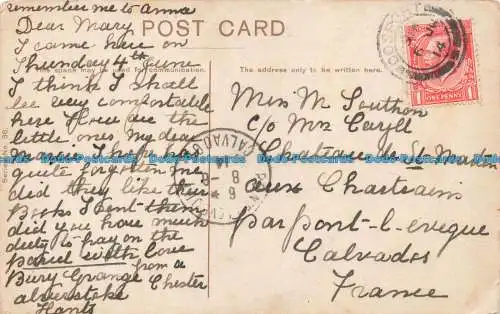 remember me to Anna
Dear Mary
I came here on
Thursday 4th June
I think I shall
be very comfortable
here How are the
little ones my dear
I hope has
quite forgotten me
did they like their
Books I sent them
did you have much
duty to pay on the
parcel with love
from a
Bury Grange Chester
alverstoke
Hants
POST CARD
This space may be used for communication.
The address only to be written here.
Series No 96.
Miss M Southon
c/o Mrs Caryll
Chateau de St Martin
aux Chartrains
par pont-l-eveque
Calvados
France
ONE PENNY
CALVADOS
14